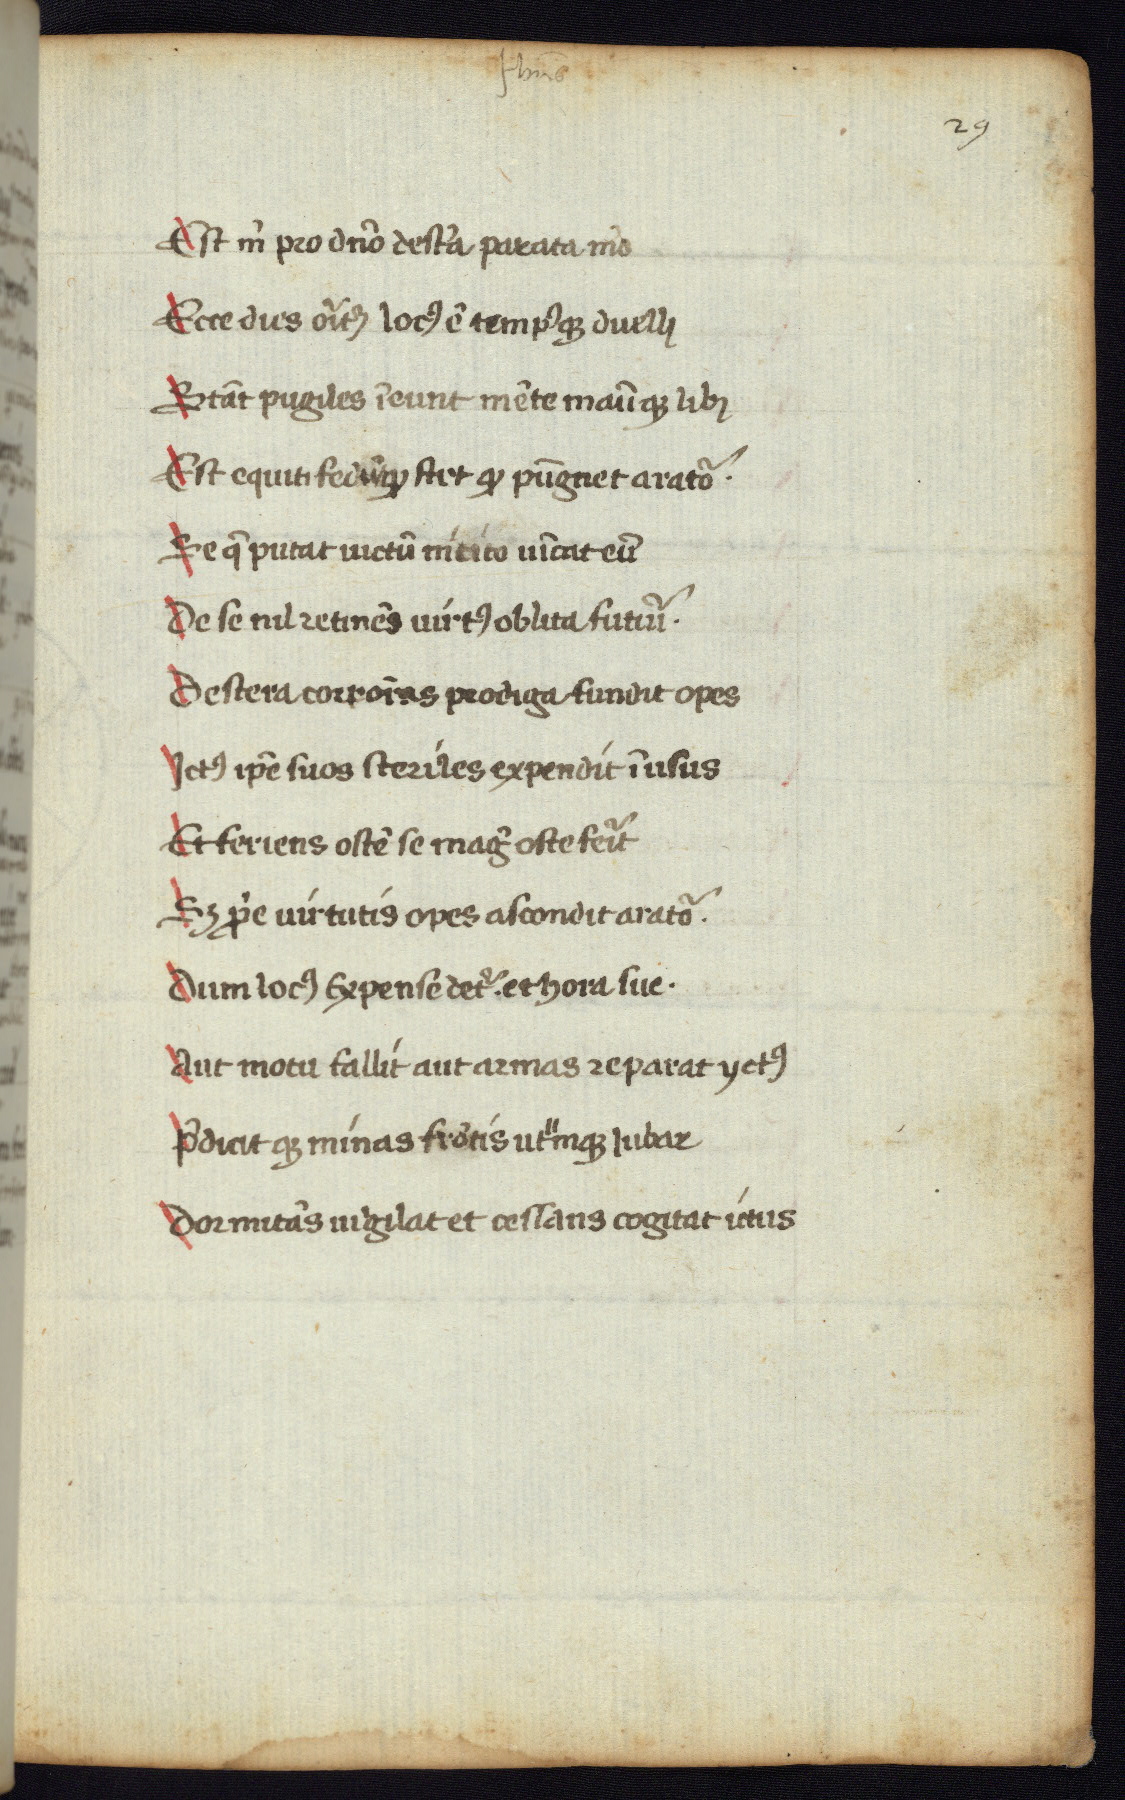 Jhus
29
Est m̄ pro dnō dest̄a parata mō
Ecce dies orit᷒ locꝰ ē tempꝰqꝫ duelli
Stāt pugiles īeunt mēte manūqꝫ libi
Est equiti fedū qꝫ stet qꝫ pūgnet arator.
Se q̄ putat uictū mitito uīcat eū
De se nil retinēs uirtꝰ oblita futuri.
Destera corporīs prodiga fundit opes
Ictꝰ ipē suos steriles expendit ī usus
Et feriens ostē se magꝭ oste ferit
Sꝫ p̄e uirtutis opes ascondit arator.
Dum locꝰ expense det᷒. et hora sue.
Aut motu fallit aut armas reparat yctꝰ
P̄dicit qꝫ minas frōtis utrūmqꝫ iubar
Dormitās uigilat et cessans cogitat ictus